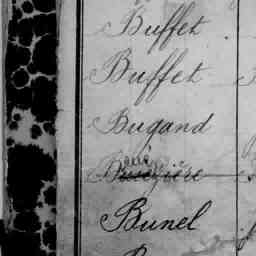 Buffet
Buffet
Bugand
Bunel